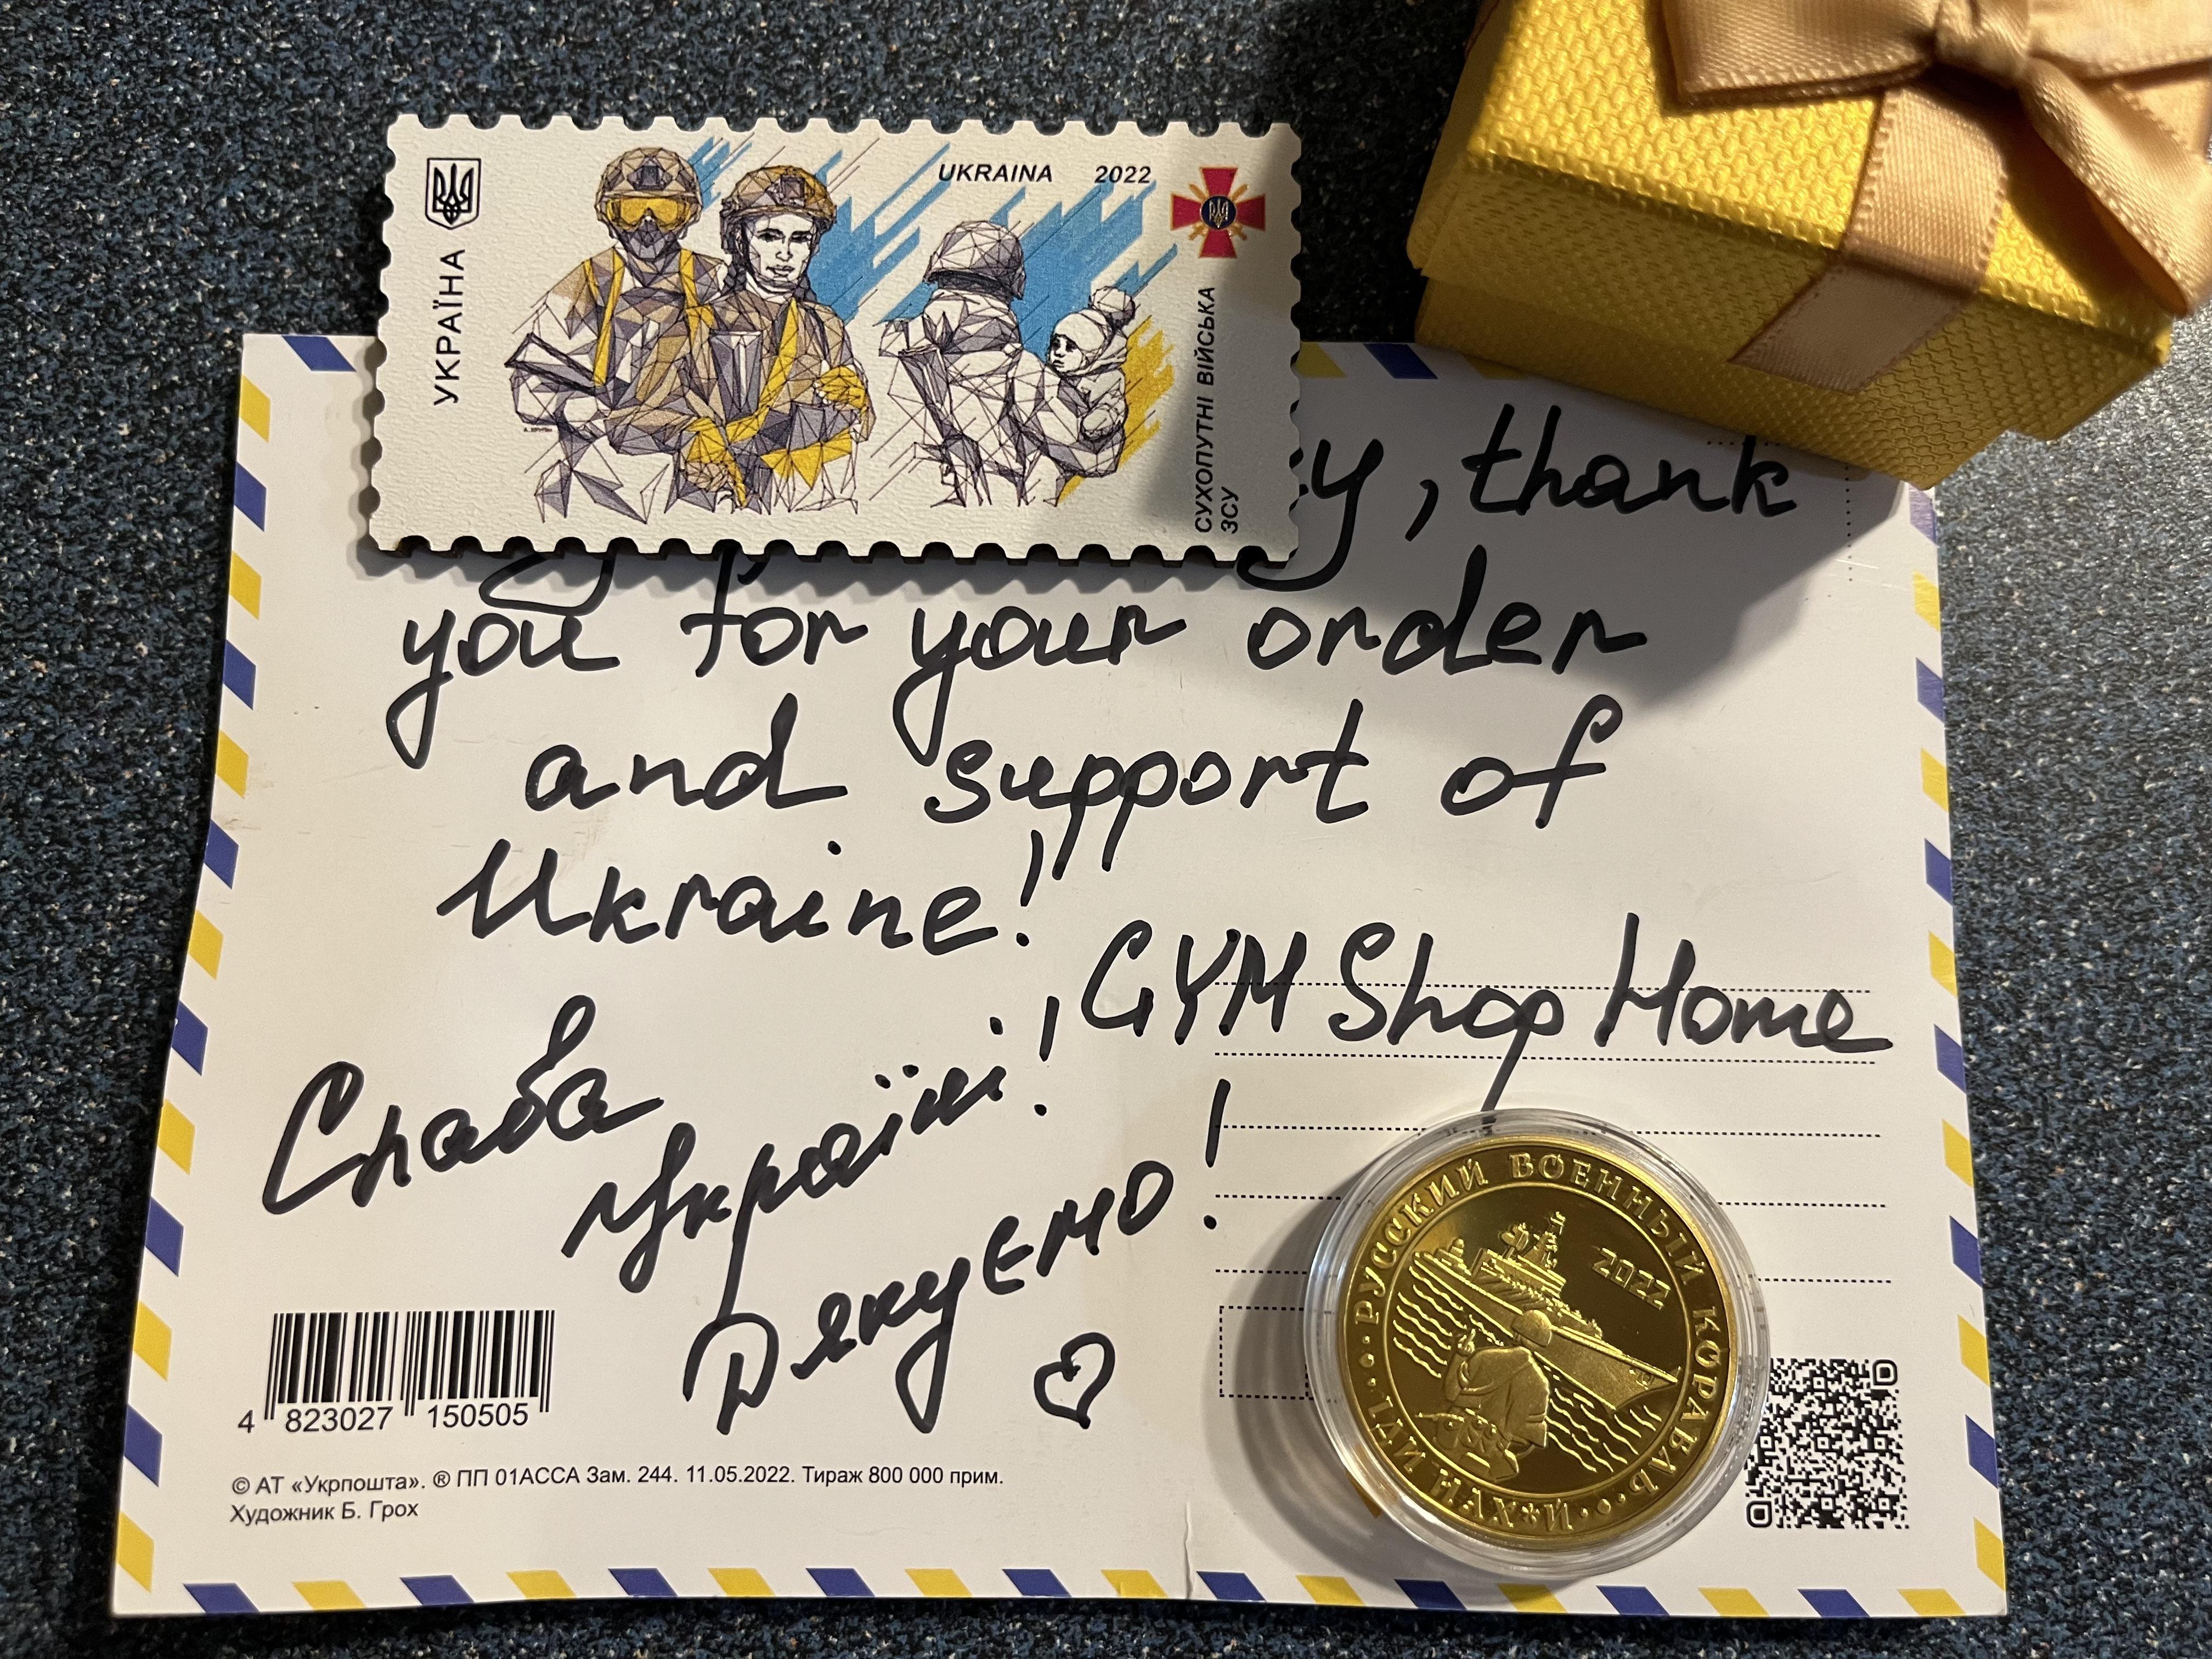 УКРАЇНА
UKRAINA 2022
СУХОПУТНІ ВІЙСЬКА
ЗСУ
, thank
you for your order
and support of
Ukraine!
GYM Shop Home
Слава
Україні!
Дякуємо!
РУССКИЙ ВОЕННЫЙ КОРАБЛЬ
ИДИ НАХ*Й
2022
4 823027 150505
© АТ «Укрпошта». ® ПП 01АССА Зам. 244. 11.05.2022. Тираж 800 000 прим.
Художник Б. Грох